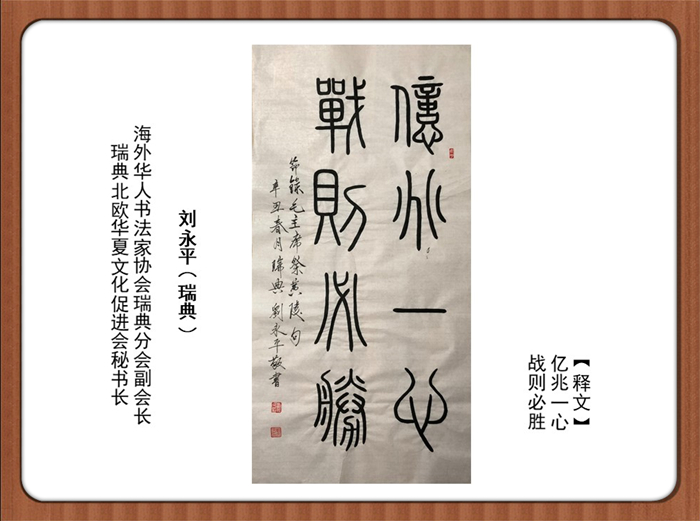 【释文】
亿兆一心
战则必胜
億兆一心
戰則必勝
节錄毛主席祭黄陵句
辛丑春月瑞典劉永平敬書
刘永平（瑞典）
海外华人书法家协会瑞典分会副会长
瑞典北欧华夏文化促进会秘书长